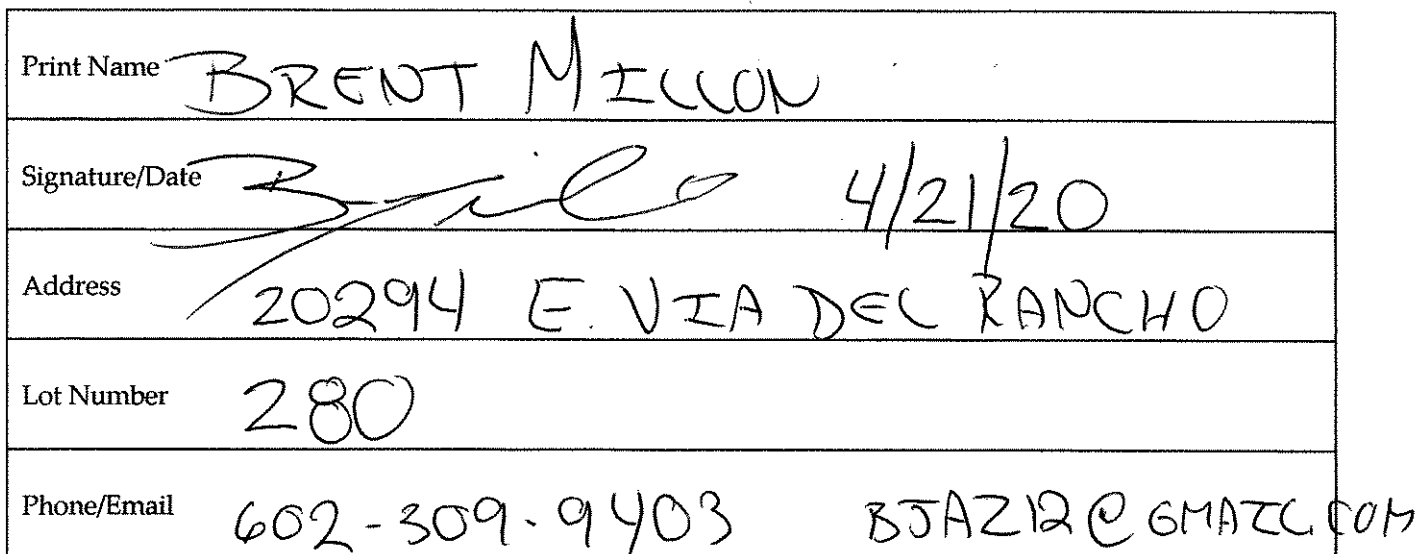 Print Name BRENT MILLON
Signature/Date 4/21/20
Address 20294 E. VIA DEL RANCHO
Lot Number 280
Phone/Email 602-309-9403 BJAZ12@GMAIL.COM